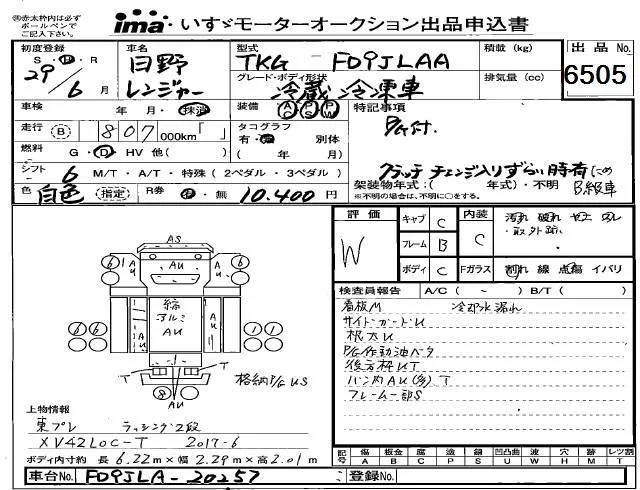 ※赤太枠内は必ず
ボールペンで
ご記入下さい。
ima いすゞモーターオークション出品申込書
初度登録 S・H・R 29/6 月
車名 日野 レンジャー
型式 TKG FD9JLAA
グレード・ボディ形状 冷蔵冷凍車
積載 (kg)
排気量 (cc)
出品 No. 6505
車検 年・月・抹消
装備 AC PS PW
特記事項
P/G付.
走行 B 807 000km「 」
タコグラフ 有・無 別体 ( 年/ 月)
燃料 G・D・HV 他( )
クラッチ チェンジ入りずらい時有(この
B級車
シフト 6 M/T・A/T・特殊(2ペダル・3ペダル)
架装物年式:( 年式)・不明
※不明の場合は、不明に○をする。
色 白色 (指定) R券 有・無 10,400 円
評価 W
キャブ C
フレーム B
ボディ C
内装 C
汚れ 破れ ヤニ コゲ
・取外跡
Fガラス 割れ 線 点傷 イバリ
検査員報告 A/C ( ~ ) B/T ( )
看板M 冷却水漏れ
サイドガードU
根太U
P/G作動油ベタ
後方枠UT
バン内AU(多)T
フレーム一部S
AS
AU
AU
AU
縞
アルミ
AU
T
T
AU
格納P/G US
6
6
6
6
1
1
8
上物情報
東プレ ラッシング2段
XV42LOC-T 2017-6
ボディ内寸約 長 6.22m×幅 2.29m×高 2.01m
記号 傷A 板金B 腐C 塗P 錆S 凹凸曲U 波W 穴H 跡M レツ割T
車台No. FD9JLA-20257 登録No.